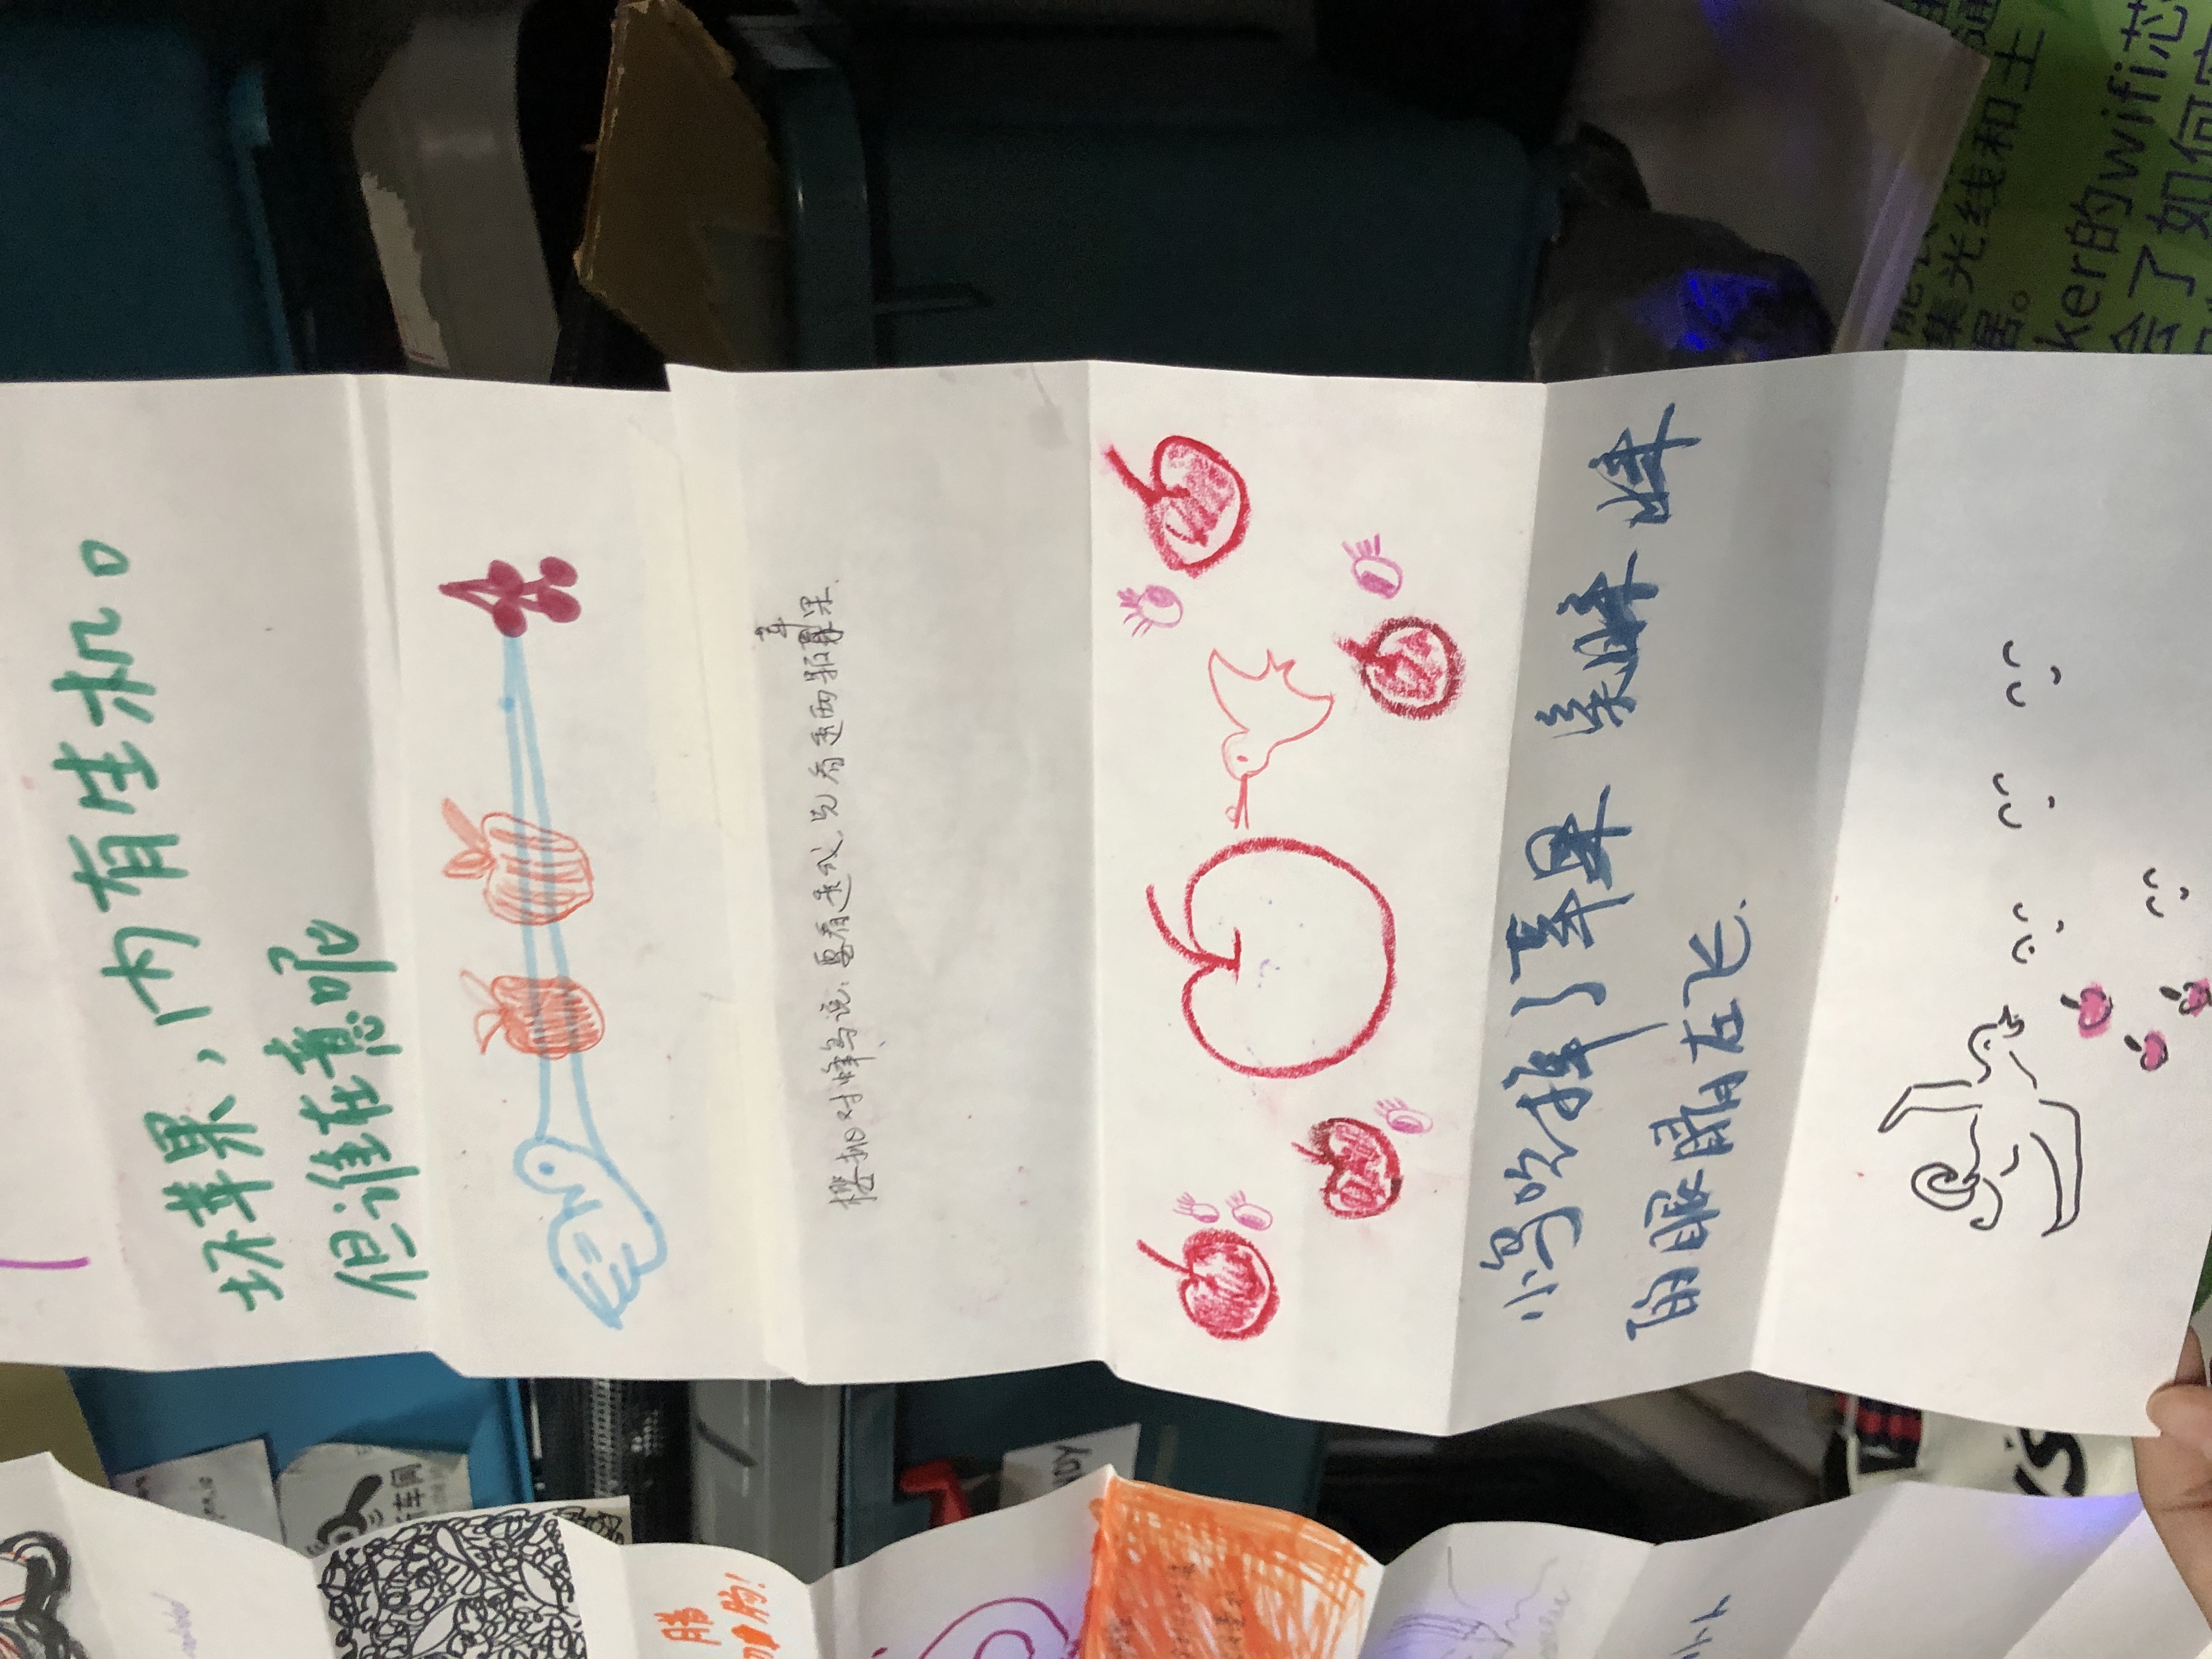 坏苹果，内有生机。
但谁在意呢
樱桃对蜂鸟说：要看透我，先看透两颗苹果.
小鸟吃掉了苹果 美眯 眯
的眼睛在飞.
车间
腊
肠!
NDY
集光线和土
据。
ker的wifi芯
会了如何